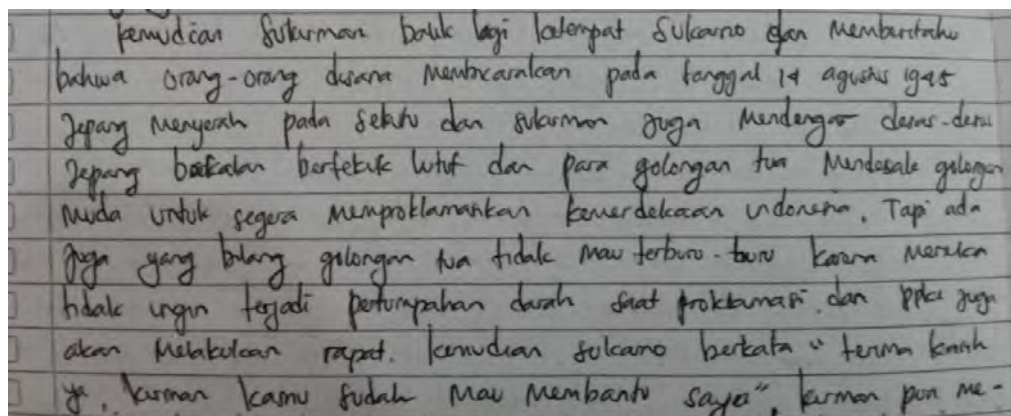 kemudian Sukarman balik lagi ketempat Sukarno dan Memberitahu
bahwa orang-orang disana Membicarakan pada tanggal 14 agustus 1945
Jepang Menyerah pada Sekutu dan sukarman juga Mendengar desas-desu
Jepang baekalan bertekuk lutut dan para golongan tua Mendesak golongan
Muda untuk segera Memproklamasikan kemerdekaan indonesia. Tapi ada
juga yang bilang golongan tua tidak Mau terburu-buru karena Mereka
tidak ingin terjadi pertumpahan darah saat proklamasi. dan ppki juga
akan Melakukan rapat. kemudian Sukarno berkata " terima kasih
ya, karman kamu sudah Mau Membantu saya". karman pun me-